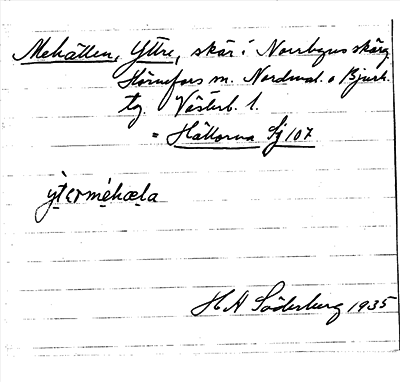 Mehällen, Yttre, skär i Norrbyns skärg.
Hörnefors m. Nordmal. o Bjurh.
tg. Västerb. l.
= Hällorna Sj 107
ỳtərmèhæḷa
H A Söderberg 1935